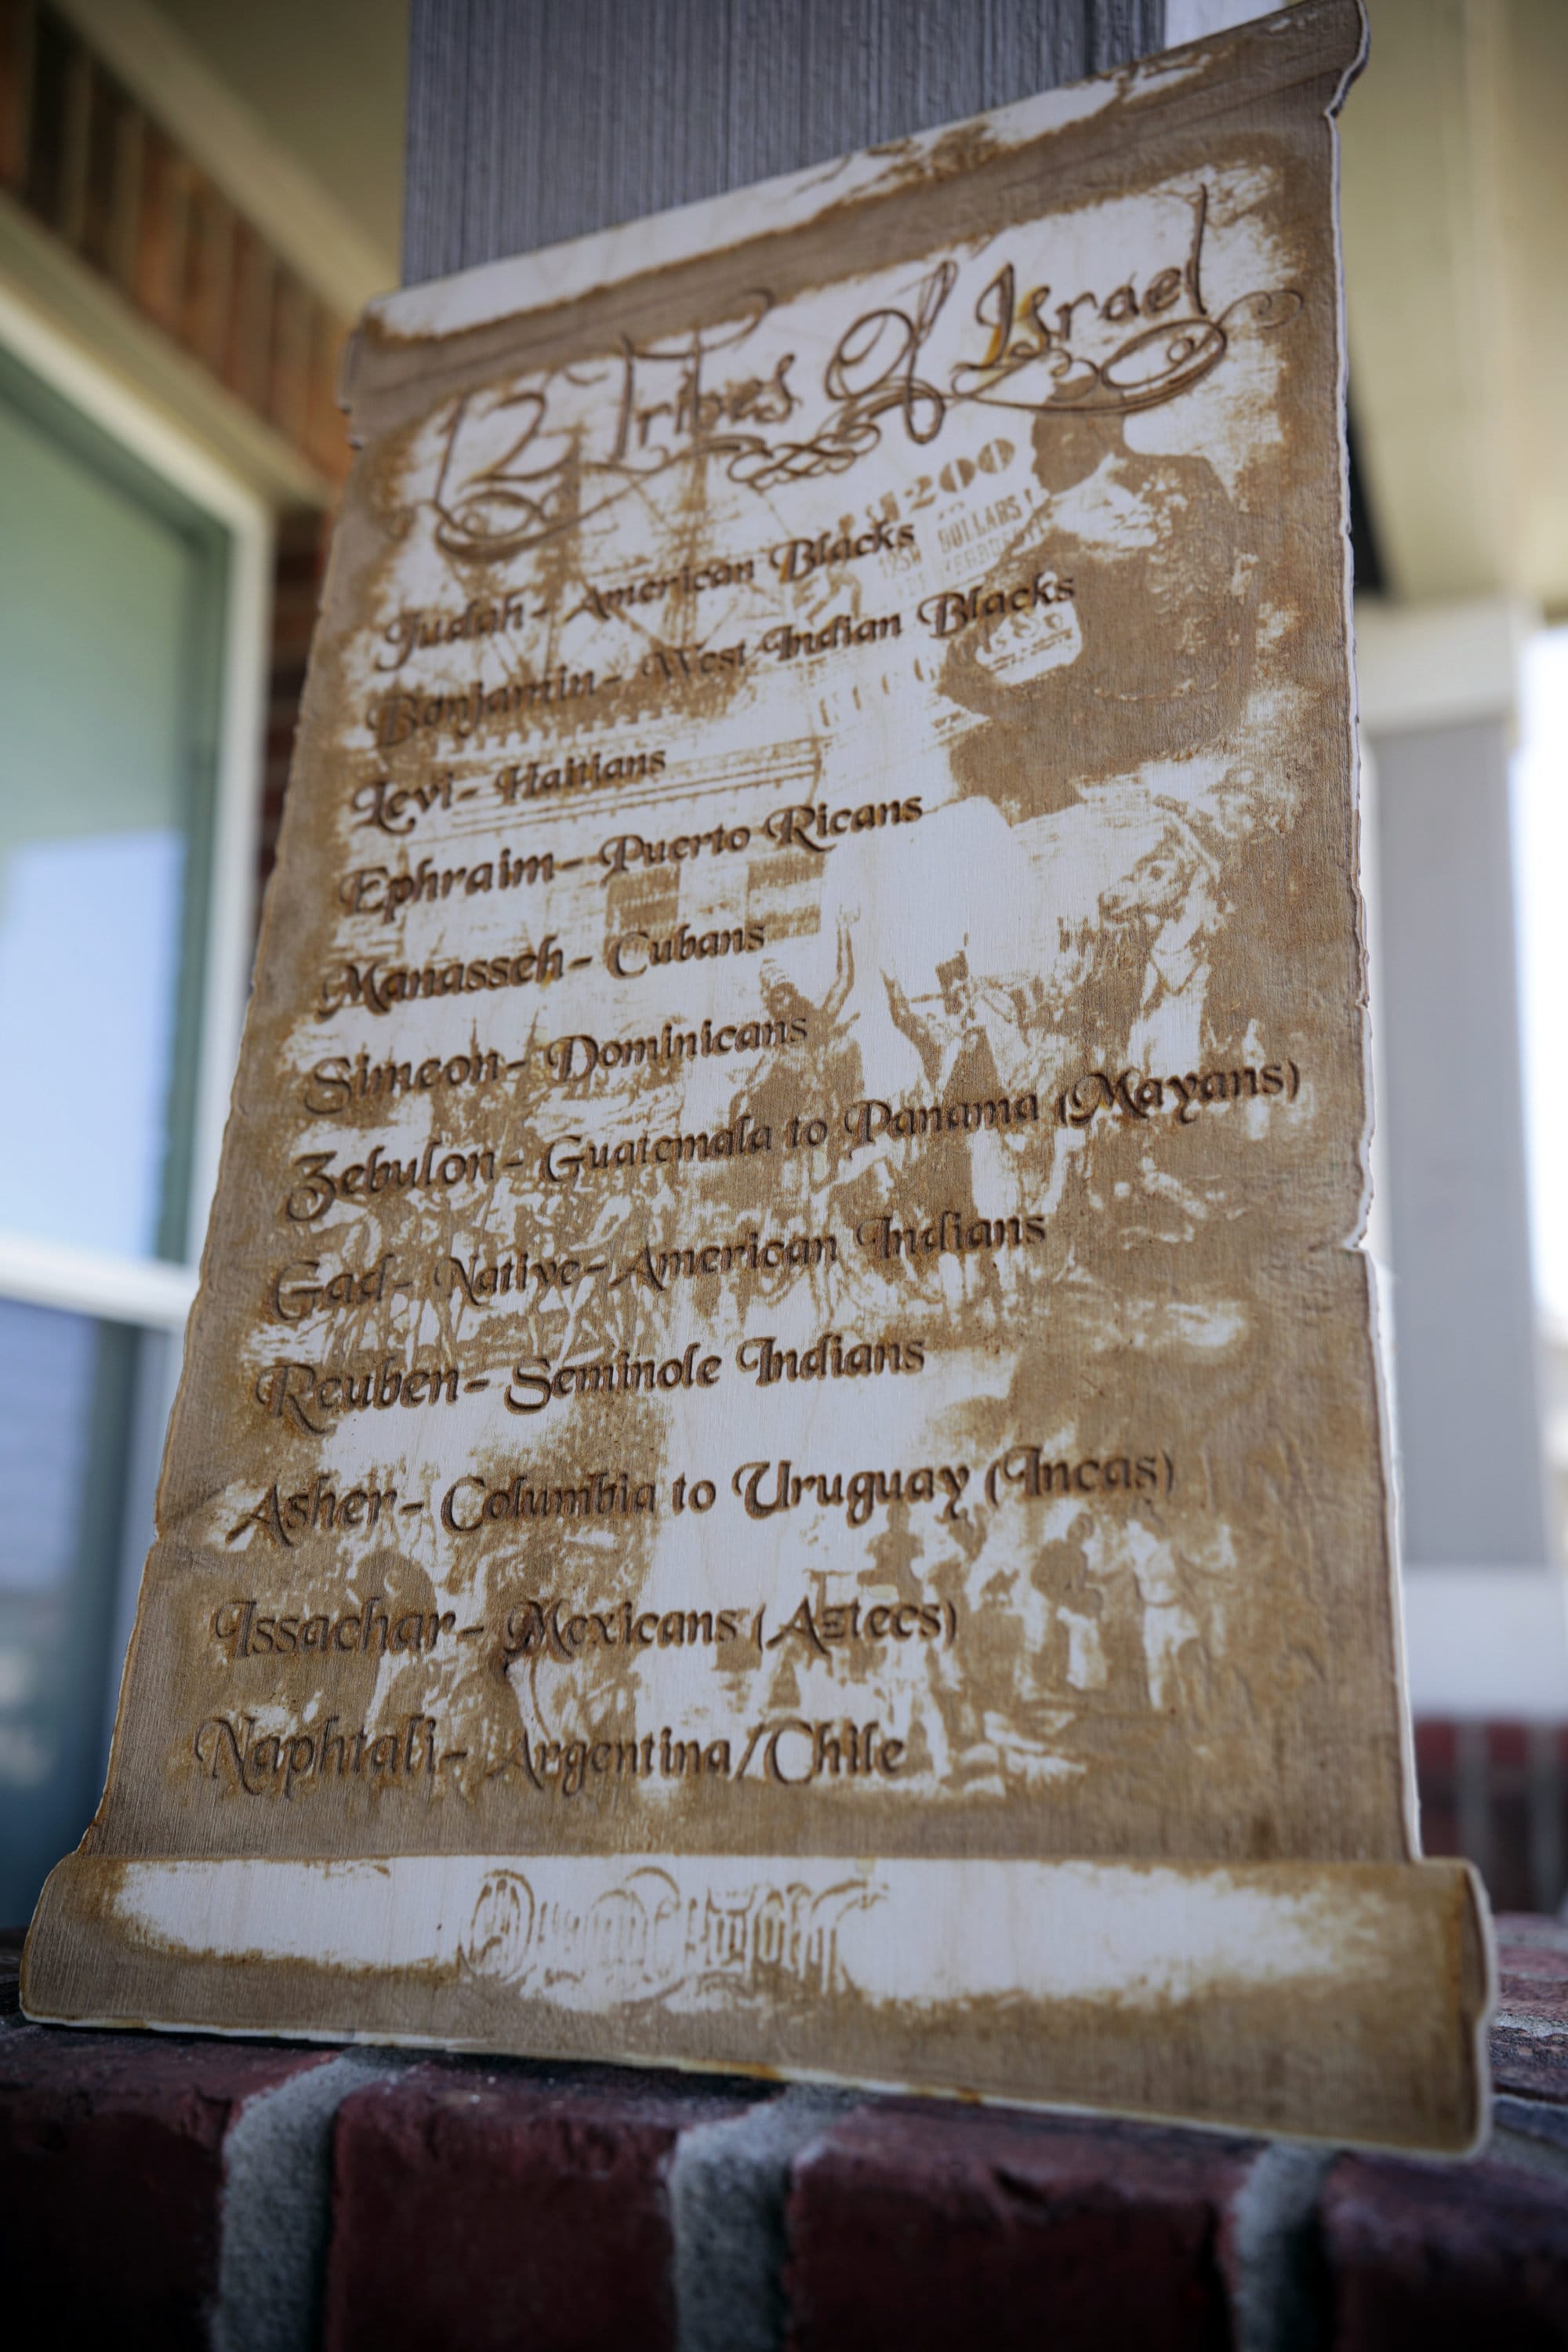 12 Tribes Of Israel
$1200
DOLLARS!
Judah- American Blacks
Benjamin- West Indian Blacks
Levi- Haitians
Ephraim- Puerto Ricans
Manasseh- Cubans
Simeon- Dominicans
Zebulon- Guatemala to Panama (Mayans)
Gad- Native-American Indians
Reuben- Seminole Indians
Asher- Columbia to Uruguay (Incas)
Issachar- Mexicans (Aztecs)
Naphtali- Argentina/Chile